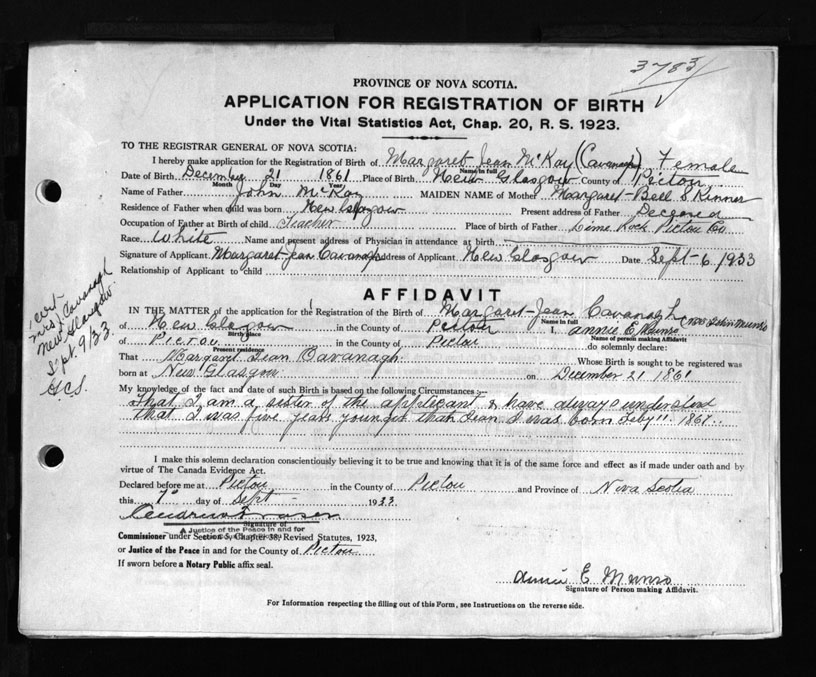 3783
PROVINCE OF NOVA SCOTIA.
APPLICATION FOR REGISTRATION OF BIRTH
Under the Vital Statistics Act, Chap. 20, R. S. 1923.
TO THE REGISTRAR GENERAL OF NOVA SCOTIA:
I hereby make application for the Registration of Birth of Margaret Jean McKay (Cavanagh) Female
Name in full
Date of Birth December 21 1861 Place of Birth New Glasgow County of Pictou
Month Day Year
Name of Father John McKay MAIDEN NAME of Mother Margaret-Bell Skinner
Residence of Father when child was born New Glasgow Present address of Father Deceased
Occupation of Father at Birth of child Teacher Place of birth of Father Lime Rock Pictou Co.
Race White Name and present address of Physician in attendance at birth
Signature of Applicant Margaret Jean Cavanagh Address of Applicant New Glasgow Date Sept-6, 1933
Relationship of Applicant to child
1 cert
Mrs Cavanagh
New Glasgow.
Sept. 9/33
AFFIDAVIT
IN THE MATTER of the application for the Registration of the Birth of Margaret-Jean Cavanagh
Name in full
of New Glasgow in the County of Pictou I, Annie E Munro (Mrs John Munro
Birth place Name of person making Affidavit
of Pictou in the County of Pictou do solemnly declare:
Present residence
That Margaret Jean Cavanagh Whose Birth is sought to be registered was
born at New Glasgow on December 21 1861
My knowledge of the fact and date of such Birth is based on the following Circumstances:-
That I am a sister of the applicant & have always understood
that I was five years younger than Jean I was born Feby 11 1867.
I make this solemn declaration conscientiously believing it to be true and knowing that it is of the same force and effect as if made under oath and by
virtue of The Canada Evidence Act.
Declared before me at Pictou in the County of Pictou and Province of Nova Scotia
this 7 day of Sept 1933
Signature of
A Justice of the Peace in and for
Commissioner under Section 5, Chapter 38, Revised Statutes, 1923,
or Justice of the Peace in and for the County of Pictou
If sworn before a Notary Public affix seal.
Annie E Munro
Signature of Person making Affidavit.
For Information respecting the filling out of this Form, see Instructions on the reverse side.